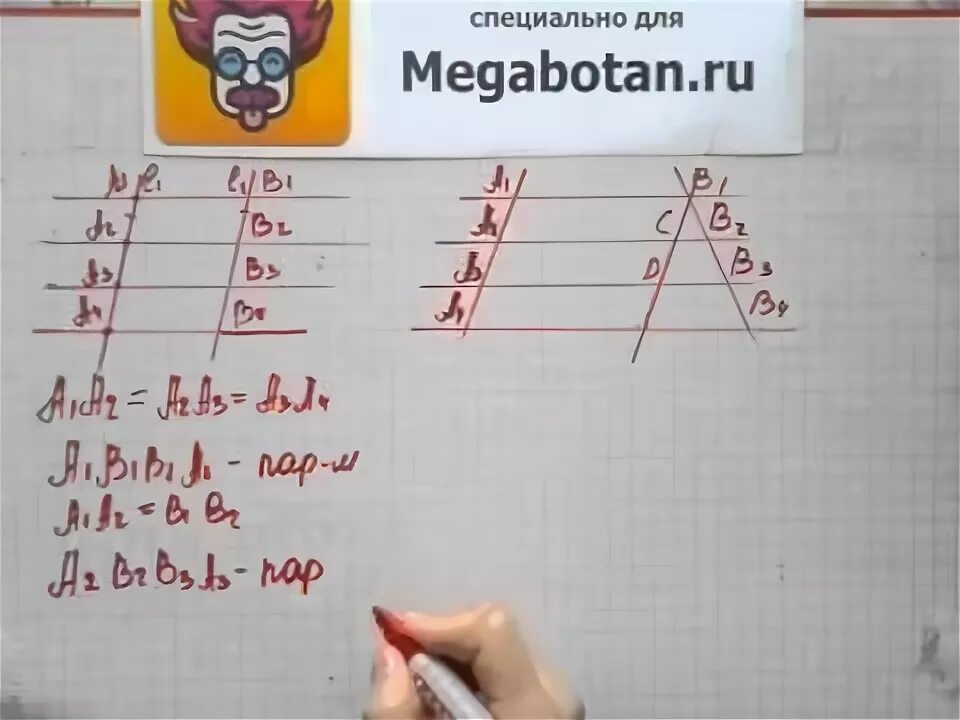 специально для
Megabotan.ru
l₁ B₁
A₂ B₂
A₃ B₃
A₄ B₄
A₁ B₁
C B₂
D B₃
A₄ B₄
A₁A₂ = A₂A₃ = A₃A₄
A₁B₁B₂A₂ - пар-м
A₁A₂ = B₁B₂
A₂B₂B₃A₃ - пар